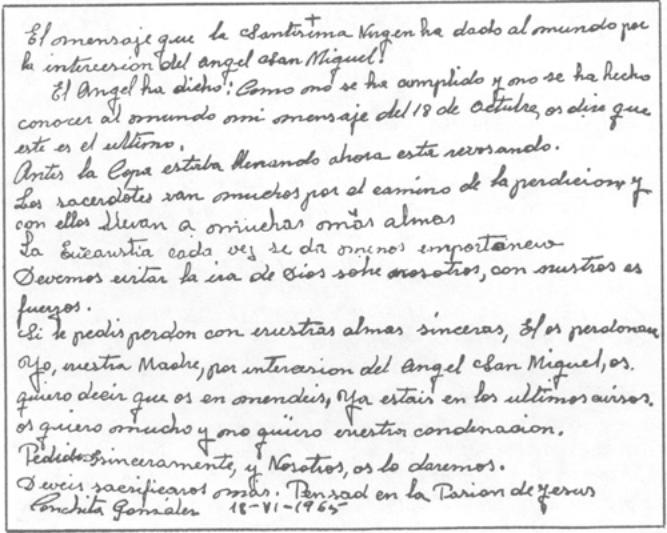 El mensaje que la Santisima Virgen ha dado al mundo por
la intercersion del angel San Miguel!
El Angel ha dicho: Como no se ha cumplido y no se ha hecho
conocer al mundo mi mensaje del 18 de Octubre, os dire que
este es el ultimo.
Antes la Copa estaba llenando ahora esta revosando.
Los sacerdotes van muchos por el camino de la perdicion y
con ellos llevan a muchas más almas
La Eucaustia cada vez se da menos emportancia
Devemos evitar la ira de Dios sobre nosotros, con nuestros es
fuerzos.
Si le pedis perdon con vuestras almas sinceras, El os perdonara
Yo, vuestra Madre, por intercesion del Angel San Miguel, os.
quiero decir que os en mendeis, Ya estais en los ultimos avisos.
os quiero mucho y no quiero vuestra condenacion.
Pedidnos sinceramente, y Nosotros, os lo daremos.
Deveis sacrificaros mas. Pensad en la Pasion de Jesus
Conchita Gonzalez 18-VI-1965